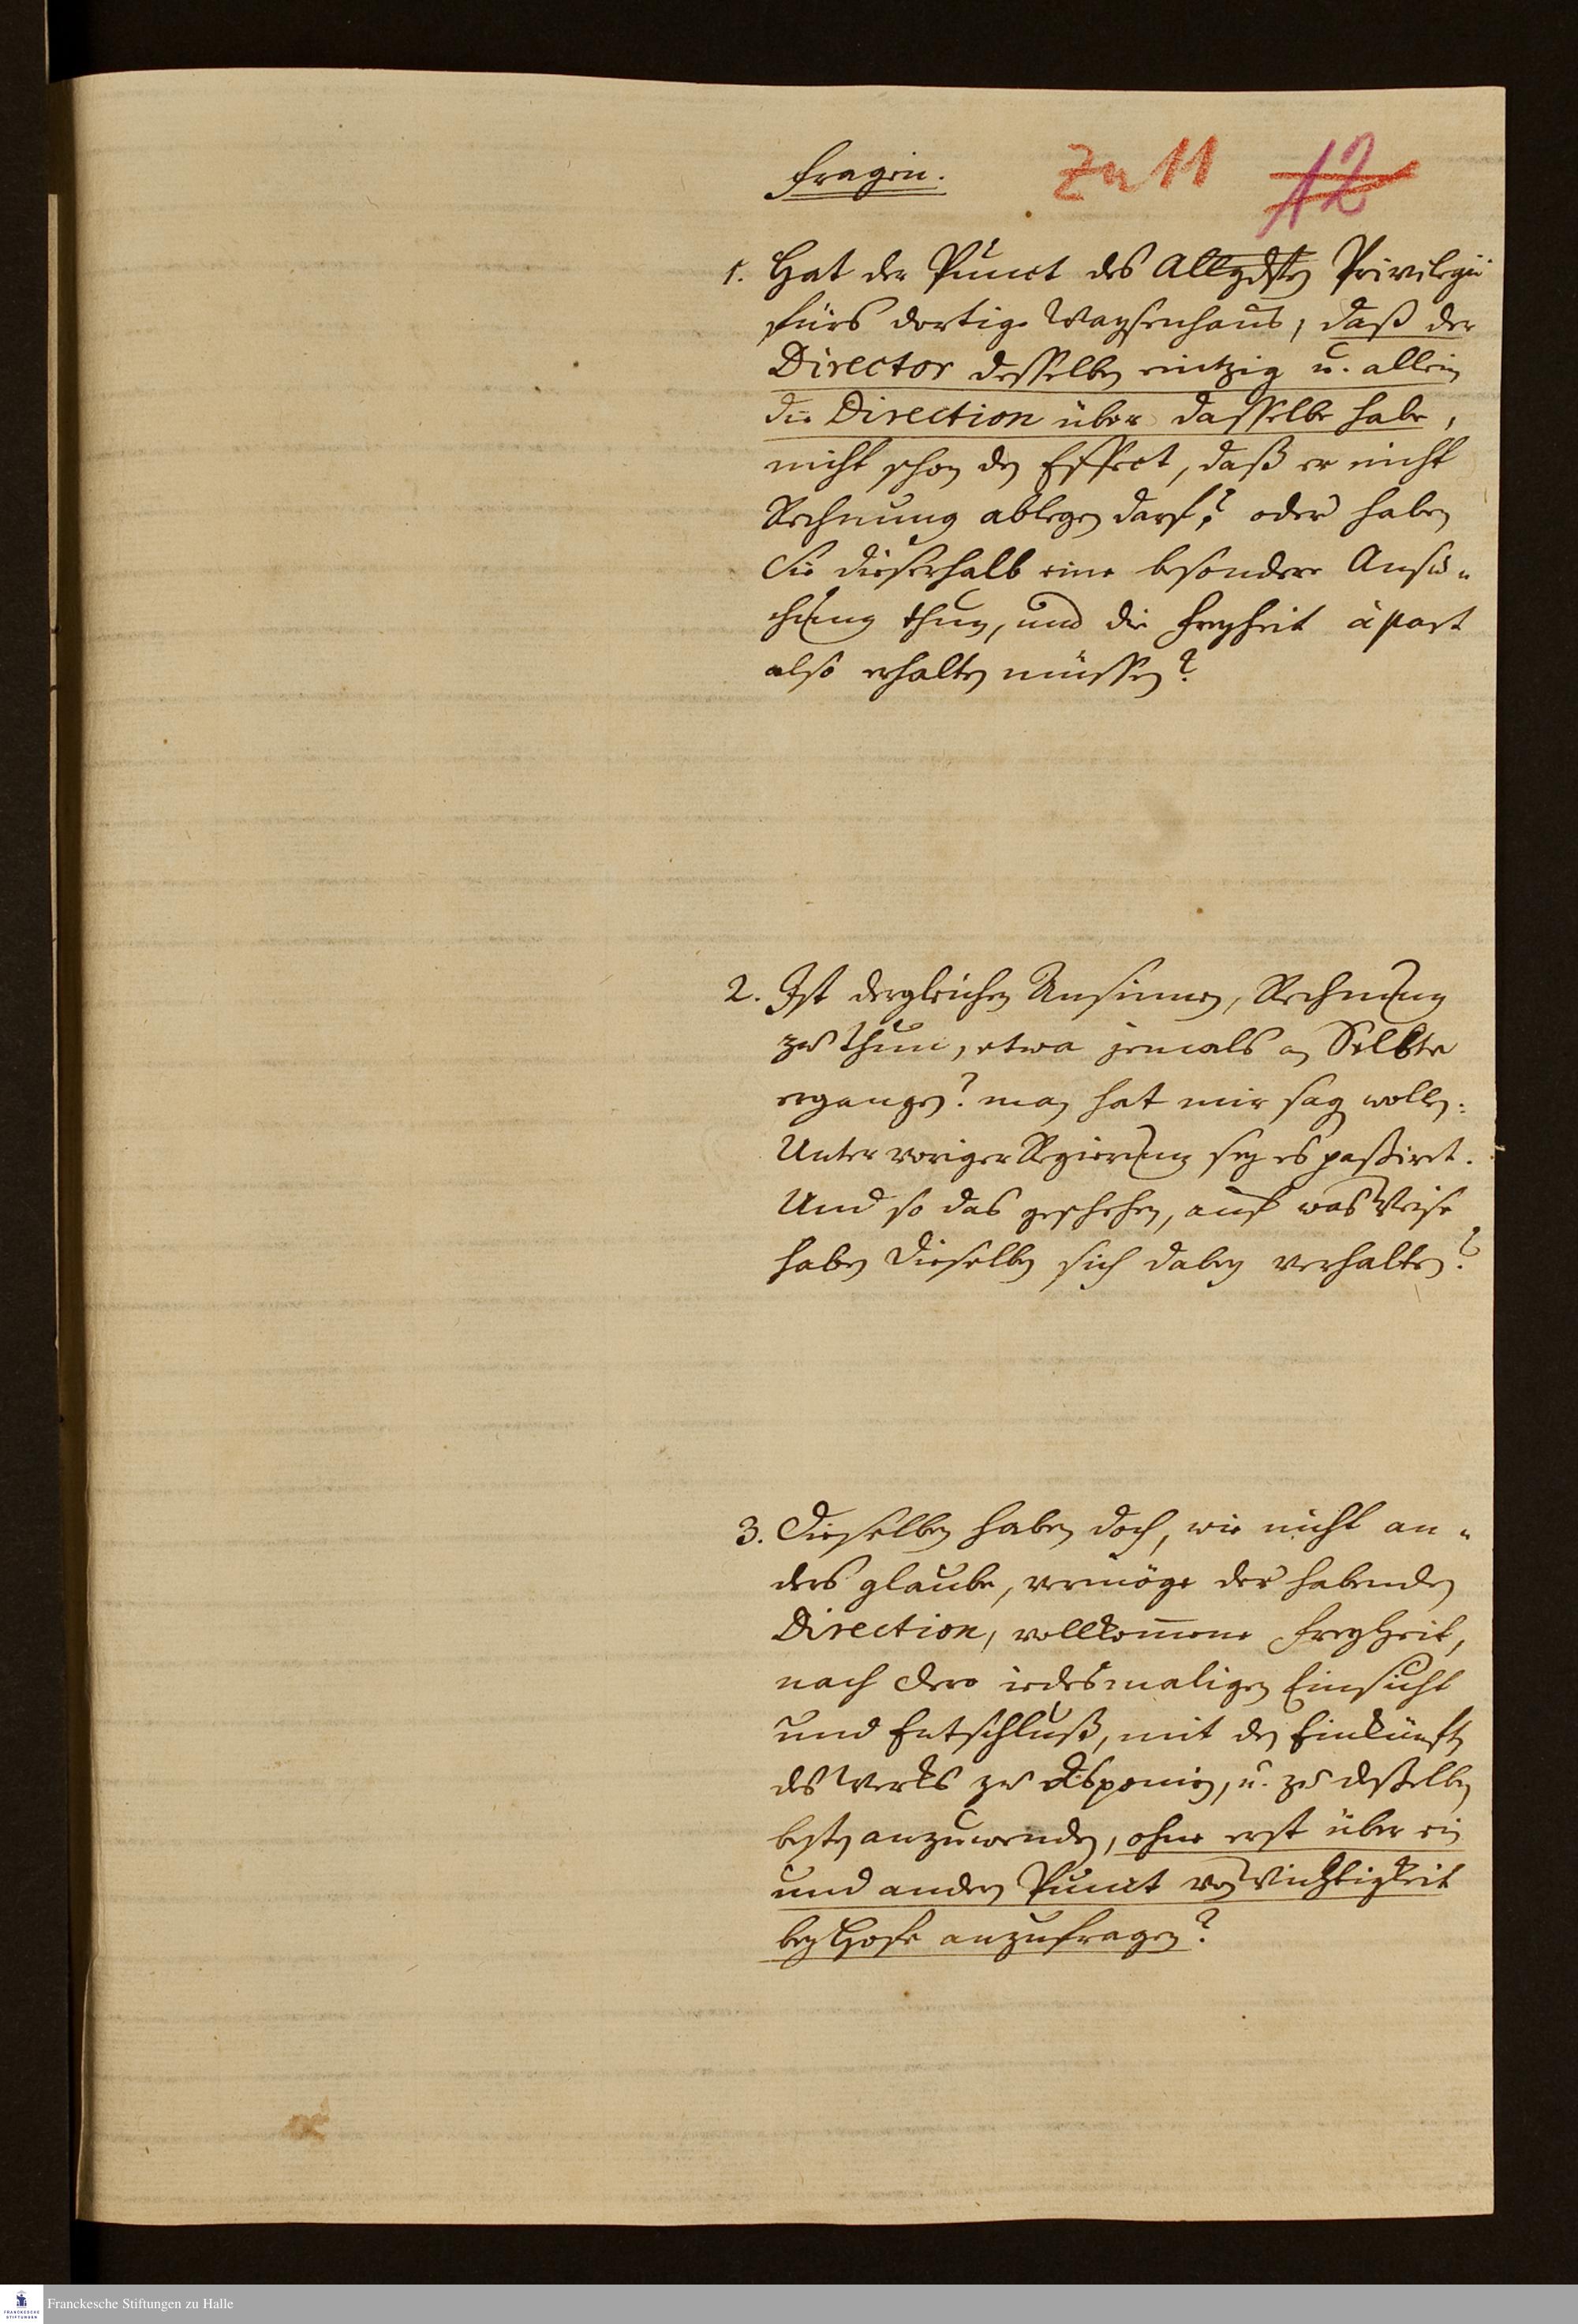 Fragen.
Zu 11 12
1. Hat der Punct des Allgdsten Privilegii
fürs dortige Waysenhaus, daß der
Director desselben eintzig u. allein
die Direction über dasselbe habe,
nicht schon den Effect, daß er nicht
Rechnung ablegen darf? oder haben
Sie dieserhalb eine besondere Ansu-
chung thun, und die Freyheit à part
also erhalten müssen?
2. Ist dergleichen Ansinnen, Rechnung
zu thun, etwa jemals an Selbte
ergangen? man hat mir sagen wollen:
Unter voriger Regierung sey es paßiret.
Und so das geschehen, auf was Weise
haben Dieselben sich dabey verhalten?
3. Dieselben haben doch, wie nicht an-
ders glaube, vermöge der habenden
Direction, vollkommene Freyheit,
nach dero iedesmaligen Einsicht
und Entschluß, mit den Einkünften
des Wercks zu disponiren, u. zu deßelben
besten anzuwenden, ohne erst über ein
und andern Punct von Wichtigkeit
bey Hofe anzufragen?
FRANCKESCHE
STIFTUNGEN
Franckesche Stiftungen zu Halle